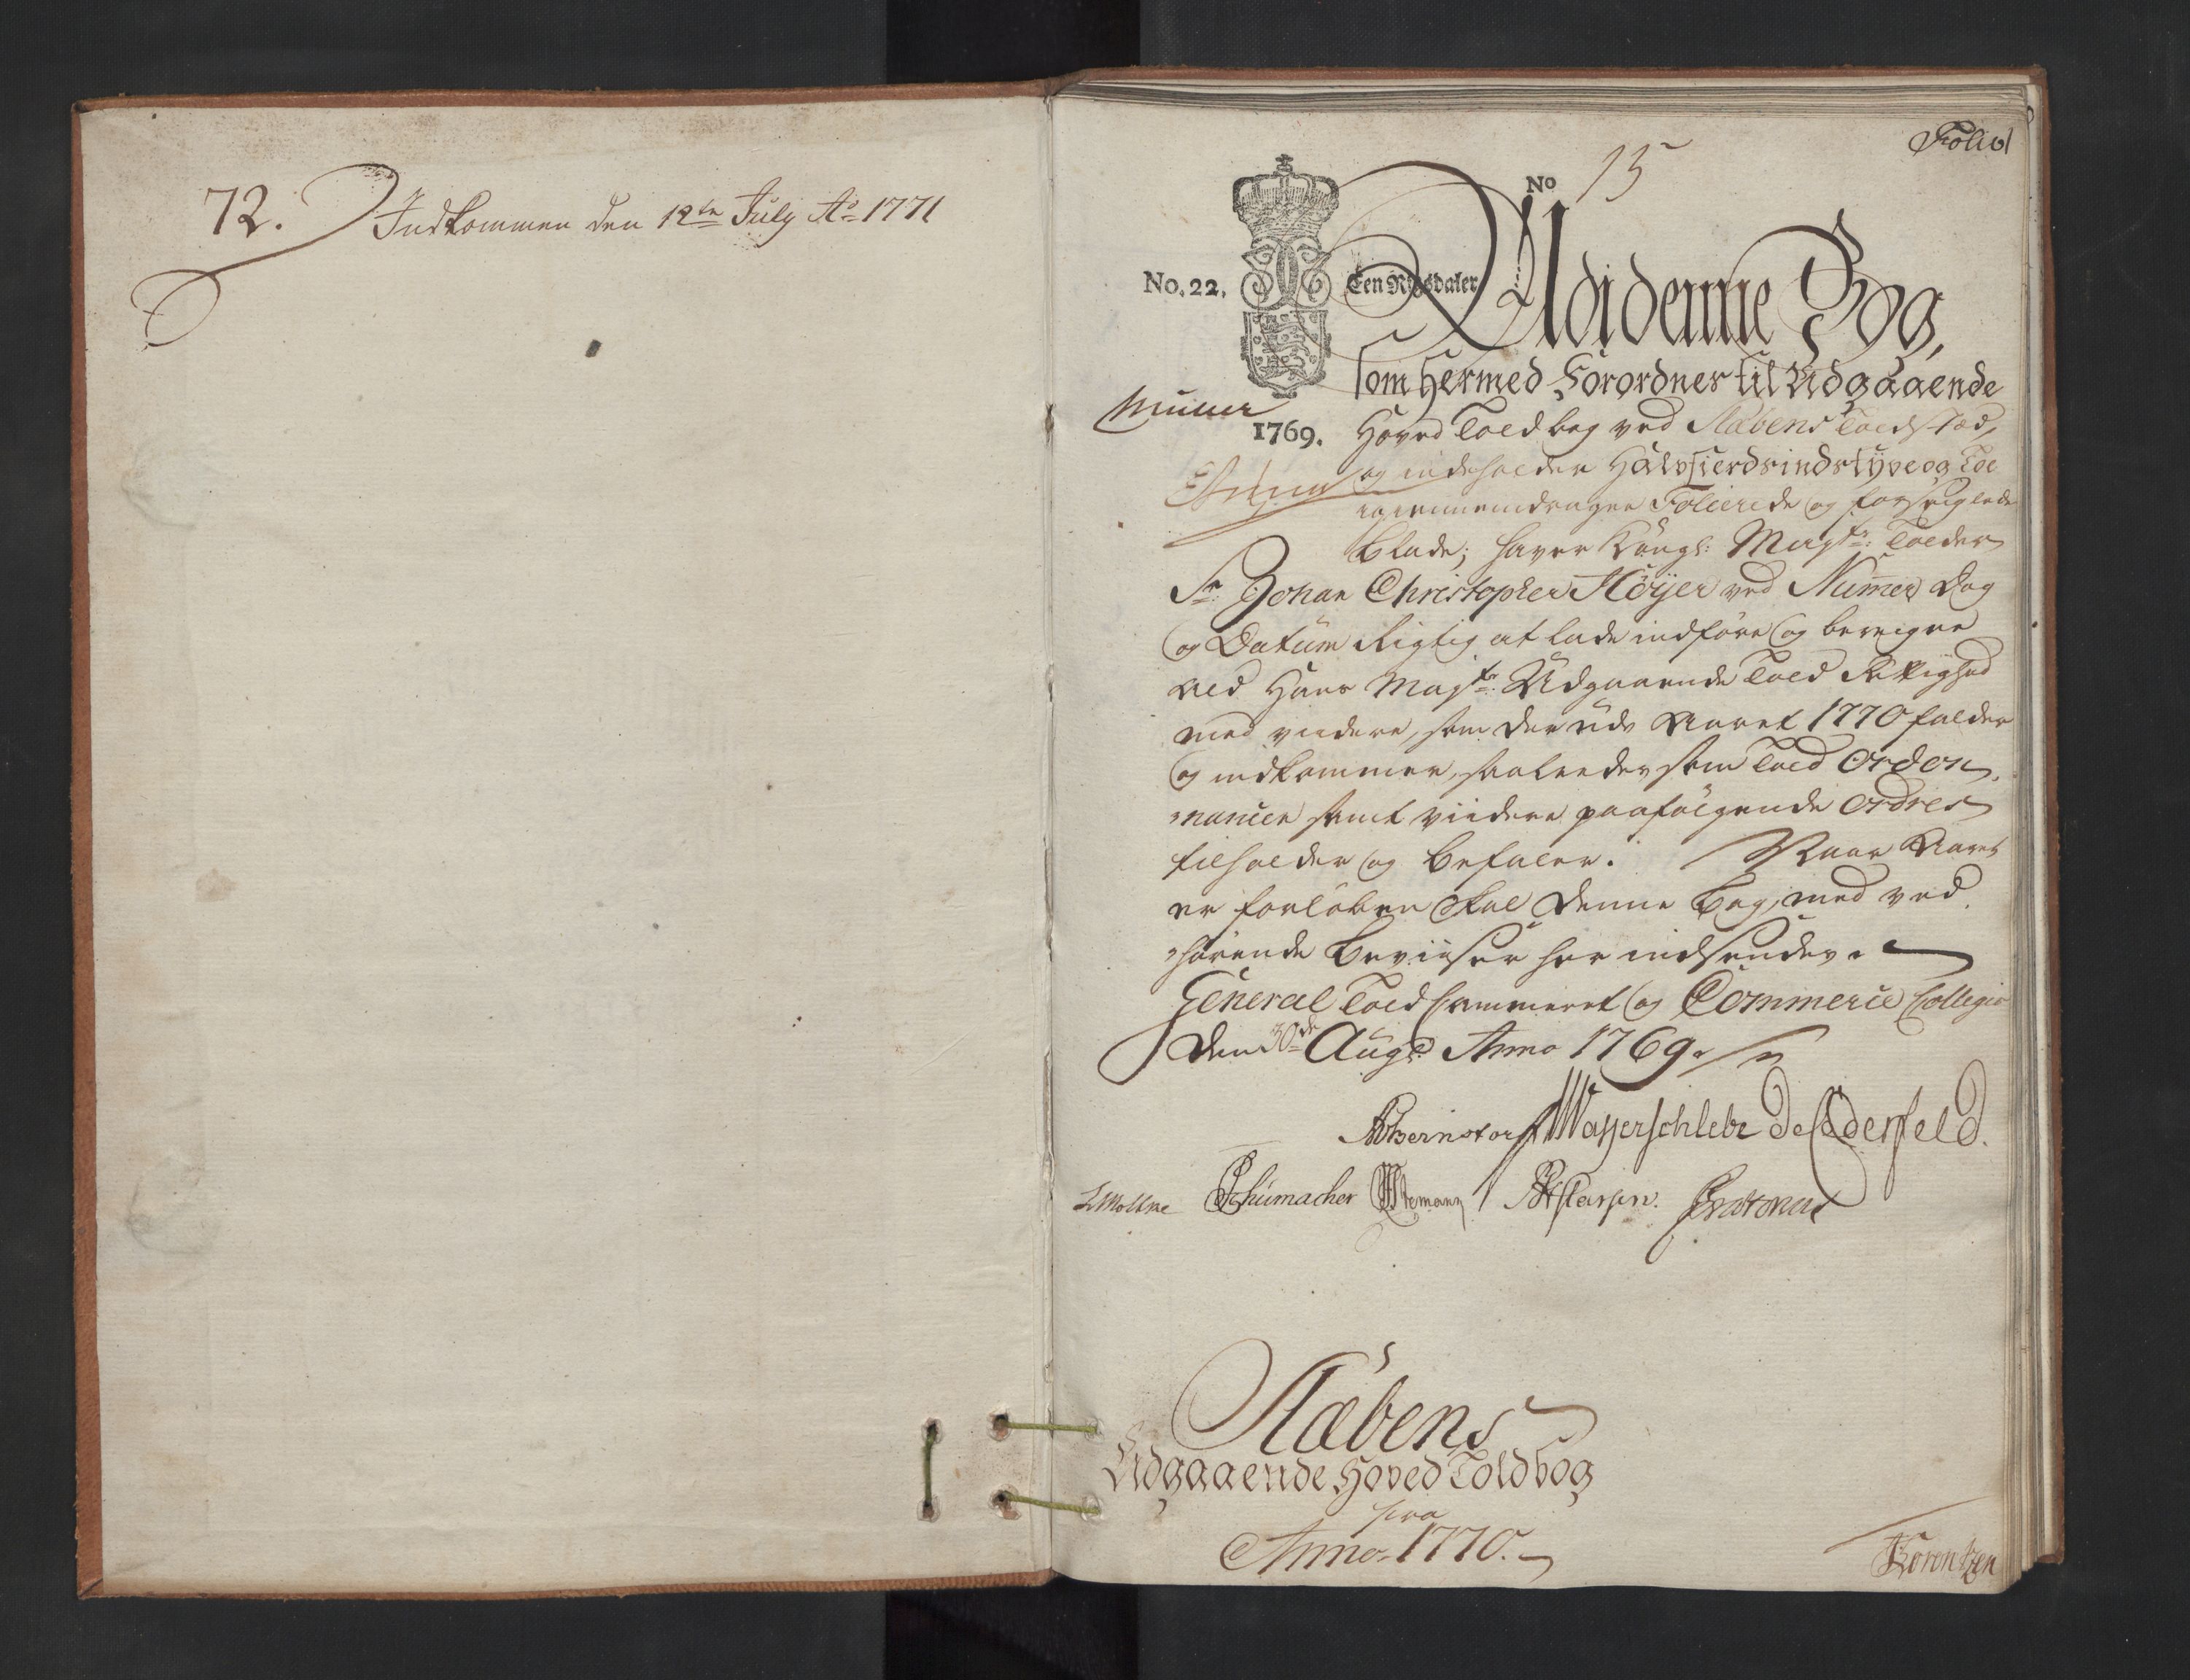 72. Indkommen den 12te July Ao 1771
Folio 1
No 15
No. 22. Een Rigsdaler
1769.
Udi denne Bog,
som hermed Forordnes til Udgaaende
Hoved Toldbog ved Stæbens Toldsted,
og indeholder Halvfierdsindstyve og Toe
igiennemdragne Folierede og forseiglede
Blade; haver Kongl: Mayts: Tolder
Sr: Johan Christopher Höyer ved Numer Dag
og Datum Rigtig at lade indføre og beregne
ald Hans Mayts: Udgaaende Told Rettighed
med viidere, som der udi Aaret 1770 falder
og indkommer, saaledes som Told Ordon-
nancen samt viidere paafølgende Ordres
tilholder og befaler. Naar Aaret
er forløben skal denne Bog, med ved-
hørende Beviiser her indsendes.
General Told Cammeret og Commerce Collegio
den 30de Augs: Anno 1769.
Bernstorff Wasserschlebe de Oderfeld.
LMoltke Schumacher
Stæbens
Udgaaende Hoved Toldbog
pro
Anno 1770.
Lorentzen